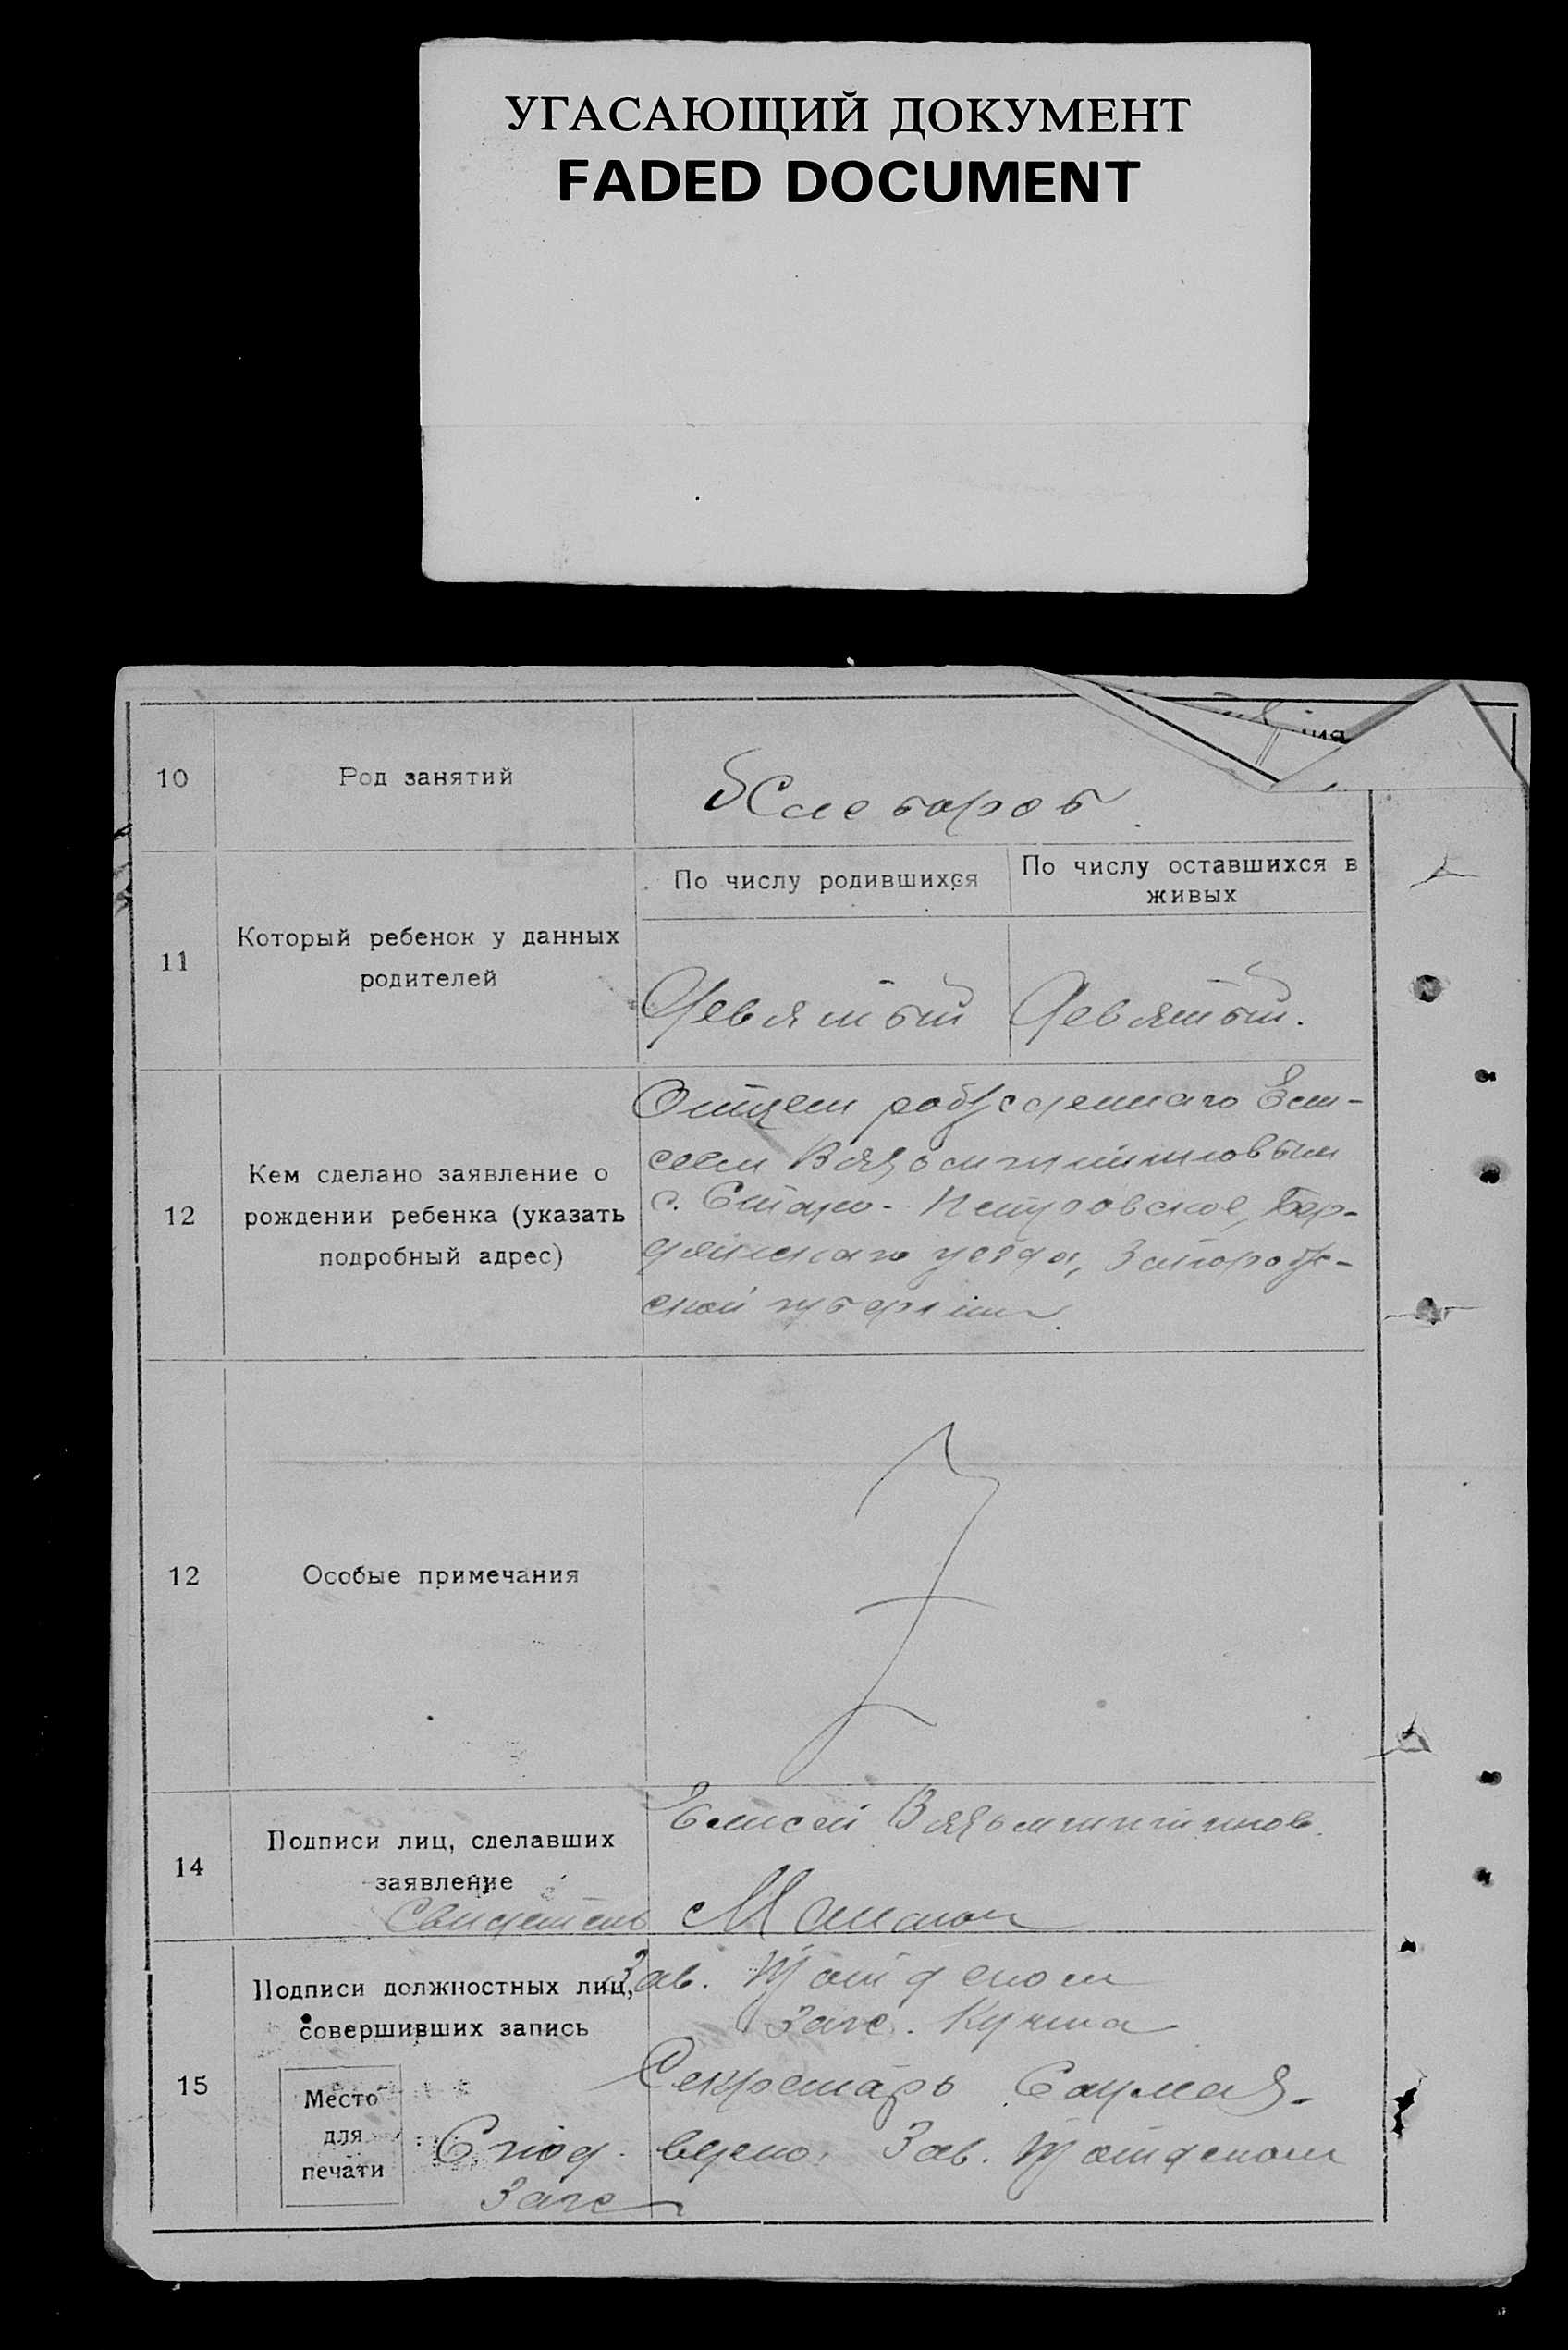 УГАСАЮЩИЙ ДОКУМЕНТ
FADED DOCUMENT
10
Род занятий
Хлебороб
11
Который ребенок у данных
родителей
По числу родившихся
По числу оставшихся в
живых
Девятый
Девятый.
12
Кем сделано заявление о
рождении ребенка (указать
подробный адрес)
Отцем рожденнаго Ели-
сеем Вязьмитиновым
с. Старо-Петровское, Бер-
дянскаго уезда, Запорож-
ской губернии.
12
Особые примечания
14
Подписи лиц, сделавших
заявление
Елисей Вязьмитинов.
Свидетель
15
Подписи должностных лиц,
совершивших запись
Зав.
Загс. Кучма
Секретарь
Место
для
печати
С под. верно. Зав.
Загс